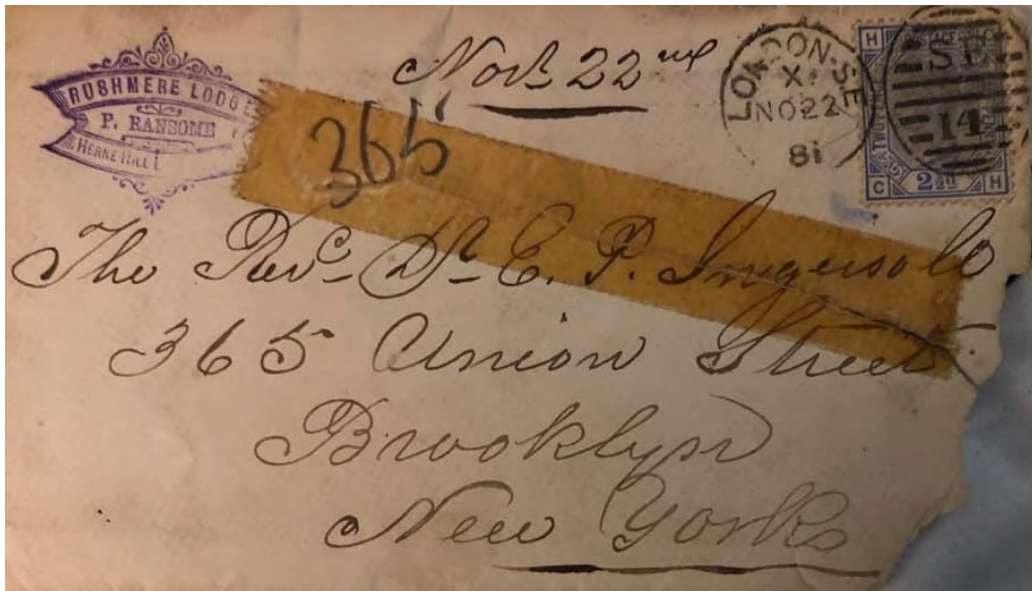 RUSHMERE LODGE
P. RANSOME
HERNE HILL
Novr 22nd
LONDON·S·E
X
NO 22
81
S.E.
14
H
C 2½d H
365
The Revd Dr E. P. Ingersoll
365 Union Street
Brooklyn
New York